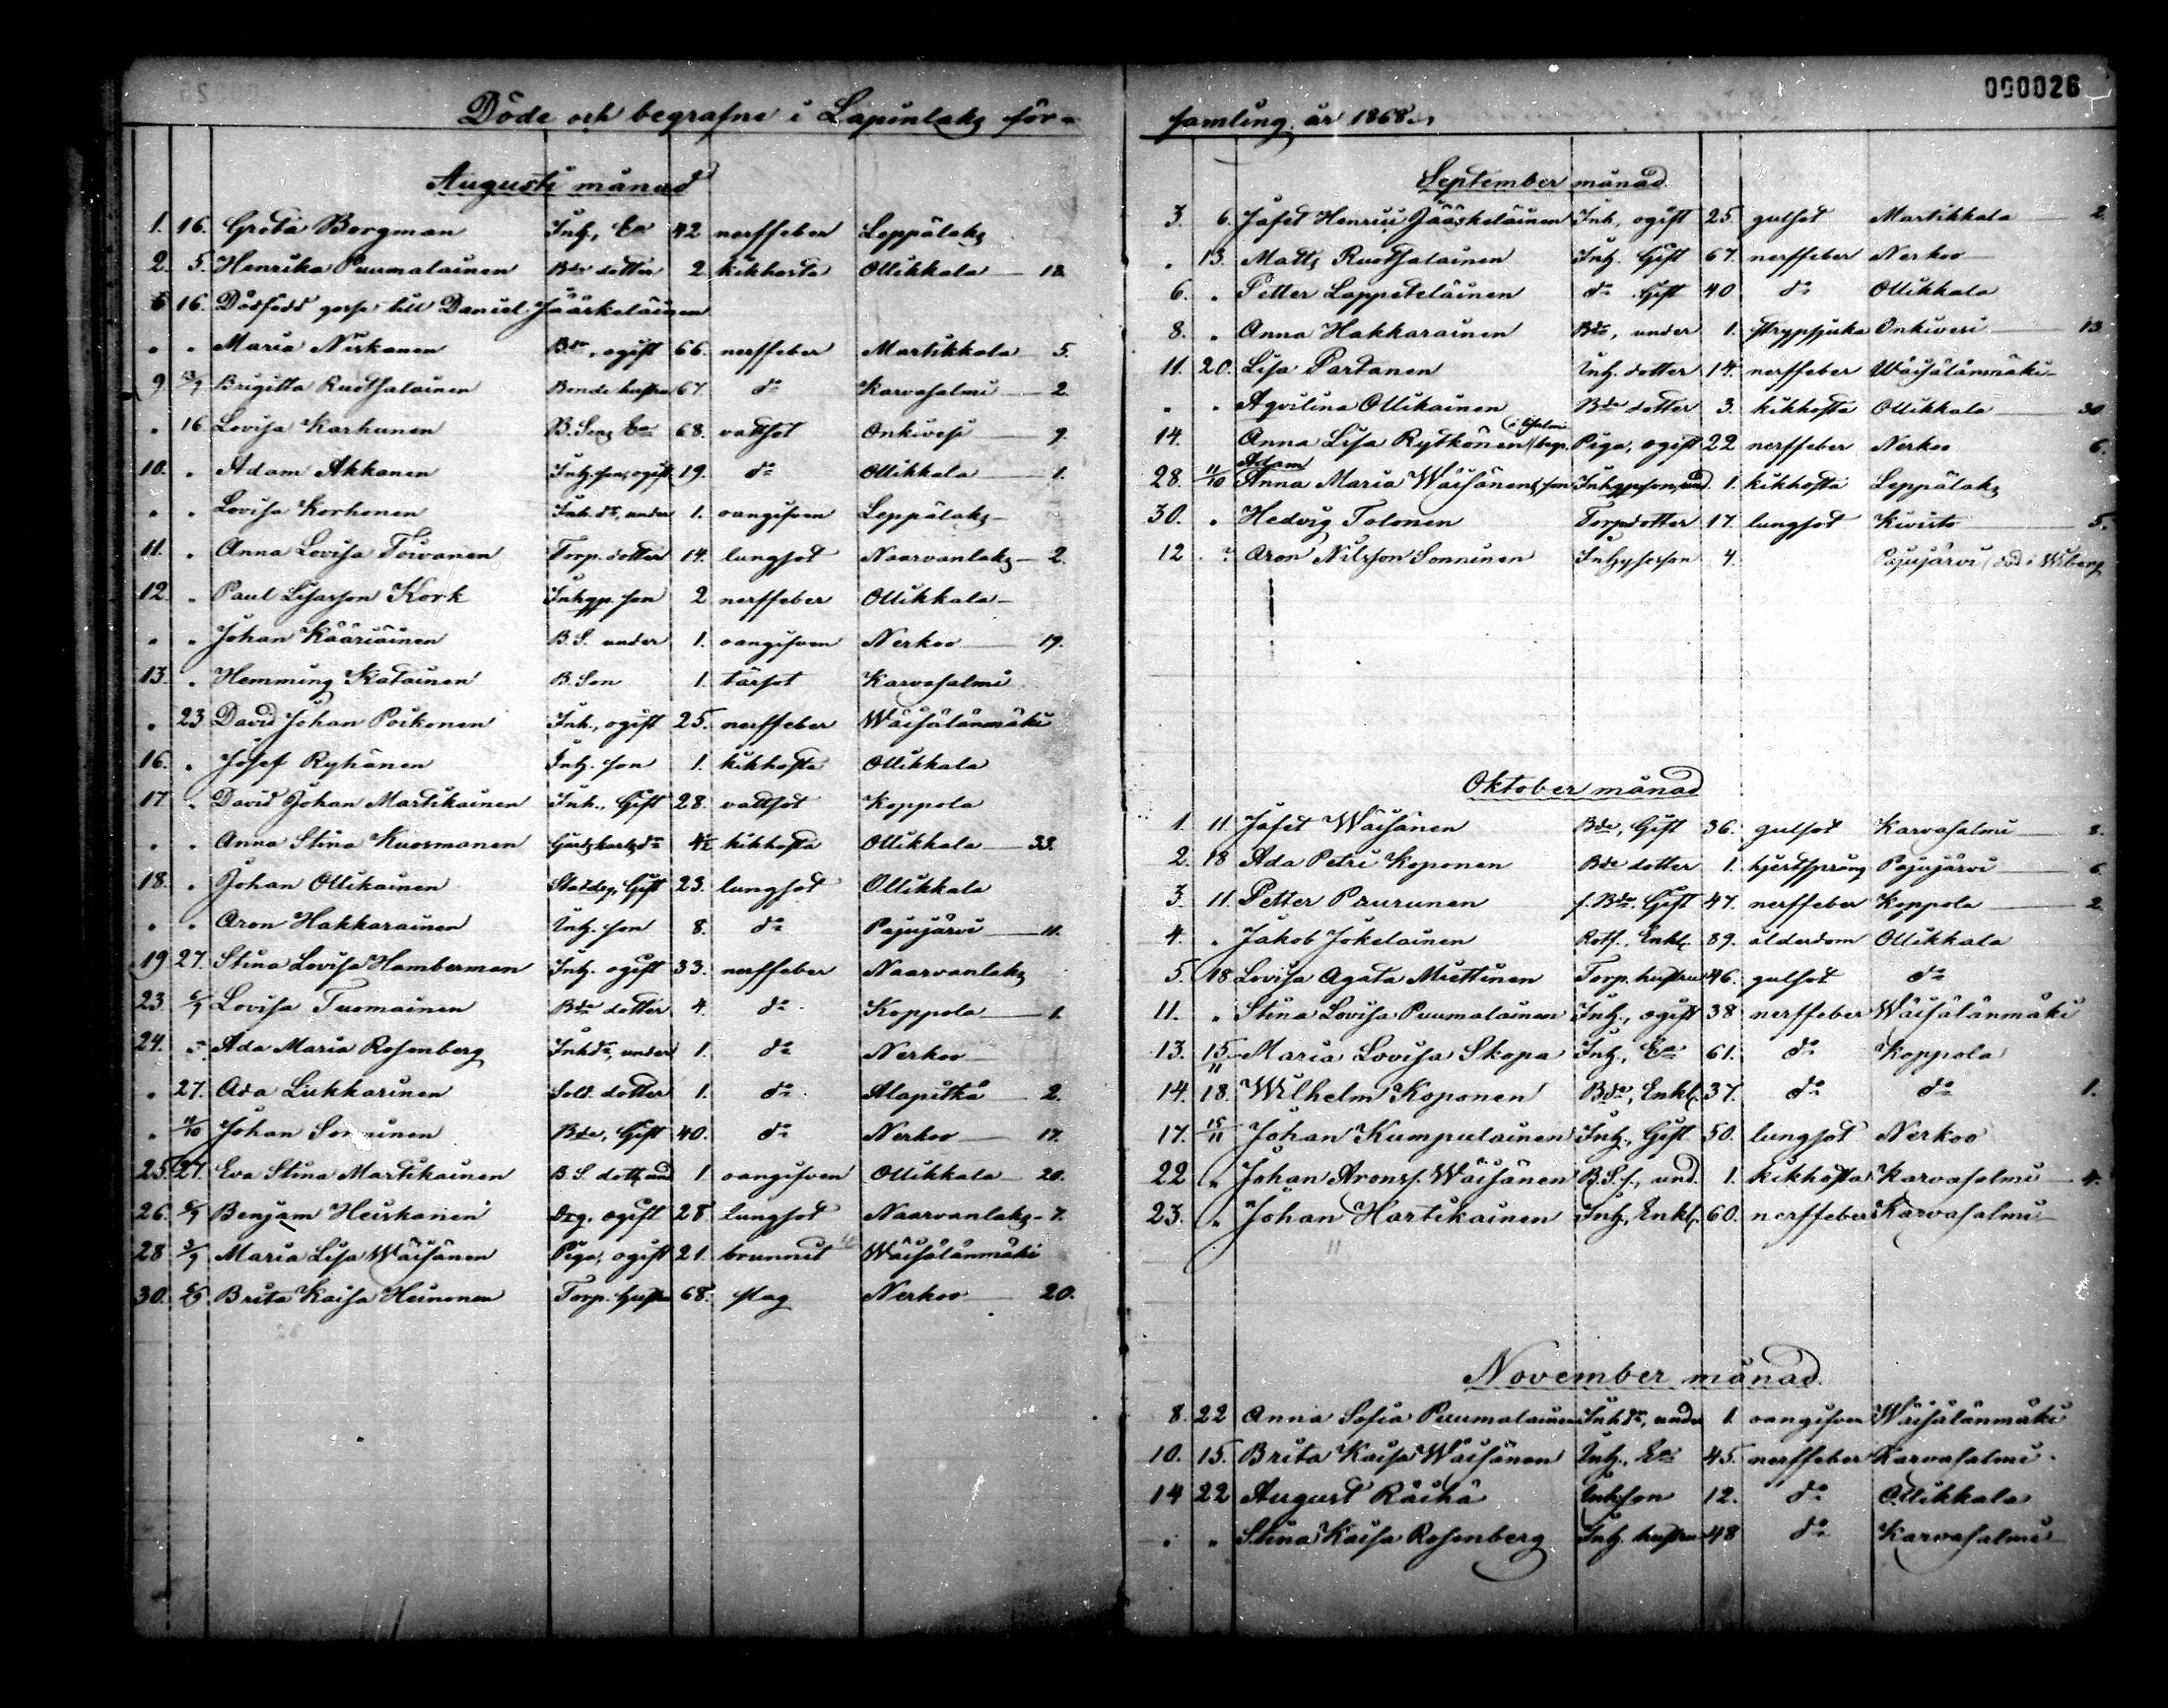 000026
Döde och begrafne i Lapinlaks för-
samling år 1868.
Augusti månad
1. 16. Greta Borgman Inh., Ea 42 nerffeber Leppälaks
2. 5. Henrika Puumalainen Bde dotter 2 kikhosta Ollikkala 18.
6 16. Dödfödd gosse till Daniel Jääskeläinen
" " Maria Niskanen Bde, ogift 66. nerffeber Martikkala 5.
9. 13/9 Brigitta Ruotsalainen Bonde hustru 67. do Karvasalmi 2.
" 16. Lovisa Karhunen B. Sons Ea 68. vattsot Onkivesi 9.
10. " Adam Akkanen Inh. son, ogift 19. do Ollikkala 1.
" " Lovisa Korhonen Inh. dr, under 1. oangifven Leppälaks
11. " Anna Lovisa Toivanen Torp. dotter 14. lungsot Naarvanlaks 2.
12. " Paul Lisasson Kork Inhgp. son 2 nerffeber Ollikkala
" " Johan Kääriäinen B.S. under 1. oangifven Nerkoo 19.
13. " Hemming Katainen B. Son 1. tärsot Karvasalmi
" 23 David Johan Poikonen Inh., ogift 25. nerffeber Wäisälänmäki
16. " Josef Ryhänen Inh. son 1. kikhosta Ollikkala
17 " David Johan Martikainen Inh., Gift 28. vattsot Koppola
" " Anna Stina Kuosmanen dr 4½ kikhosta Ollikkala 33.
18. " Johan Ollikainen Statdrg, Gift 23. lungsot Ollikkala
" " Aron Hakkarainen Inh. son 8. do Pajujärvi 11.
19 27. Stina Lovisa Hamberman Inh. ogift 33. nerffeber Naarvanlaks
23 6/9 Lovisa Tuomainen Bde dotter 4. do Koppola 1.
24. " Ada Maria Rosenberg Inhdr, under 1. do Nerkoo
" 27. Ada Liukkarinen Sold. dotter 1. do Alapitkä 2.
" 11/10 Johan Sonninen Bde, Gift 40. do Nerkoo 17.
25. 27. Eva Stina Martikainen B.S. dott, und 1 oangifven Ollikkala 20.
26. 6/9 Benjam Heiskanen Drg, ogift 28 lungsot Naarvanlaks 7.
28 Maria Lisa Wäisänen Piga, ogift 21. brunnit Wäisälänmäki
30. Brita Kaisa Heinonen Torp. hustru 68. slag Nerkoo 20.
September månad
3. 6. Jafet Henrik Jääskeläinen Inh, ogift 25. gulsot Martikkala 2.
" 13. Matts Ruotsalainen Inh. Gift 67. nerffeber Nerkoo
6. " Petter Lappeteläinen do Gift 40 do Ollikkala
8. " Anna Hakkarainen Bde, under 1. strypsjuka Onkivesi 13
11. 20. Lisa Partanen Inh. dotter 14. nerffeber Wäisälänmäki
" " Aqvilina Ollikainen Bde dotter 3. kikhosta Ollikkala 30
14. Anna Lisa Rytkönen (begr. i Idesalmi Piga, ogift 22 nerffeber Nerkoo 6.
28. 11/10 Adam Anna Maria Wäisänens son Inhgpson, und. 1. kikhosta Leppälaks
30. " Hedvig Tolonen Torpdotter 17. lungsot Kivisto 5.
12 ? Aron Nilsson Sonninen 4. Pajujärvi (död i Wiborg
Oktober månad
1. 11. Jafet Wäisänen Bde, Gift 36. gulsot Karvasalmi 8.
2. 18 Ada Petri Koponen Bde dotter 1. hjertsprång Pajujärvi 6.
3. 11. Petter Puurunen f. Bde. Gift 47. nerffeber Koppola 2.
4. " Jakob Jokelainen Rotf., Enkl. 89. ålderdom Ollikkala
5. 18 Lovisa Agata Miettinen Torp. hustru 46. gulsot do
11. " Stina Lovisa Puumalainen Inh., ogift 38 nerffeber Wäisälänmäki
13. 15/11 Maria Lovisa Skopa Inh., Ea 61. do Koppola
14. 18. Wilhelm Koponen Bde, Enkl. 37. do do 1.
17. 15/11 Johan Kumpulainen Inh., Gift 50. lungsot Nerkoo
22 " Johan Aronss. Wäisänen B.S.s., und. 1. kikhosta Karvasalmi 4.
23. " Johan Hartikainen Inh, Enkl. 60. nerffeber Karvasalmi
November månad.
8. 22 Anna Sofia Puumalainen Inhdr, under 1. oangifven Wäisälänmäki
10. 15. Brita Kaisa Wäisänen Inh., Ea 45. nerffeber Karvasalmi
14 22 August Räihä Inhson 12. do Ollikkala
" " Stina Kaisa Rosenberg Inh. hustru 48 do Karvasalmi